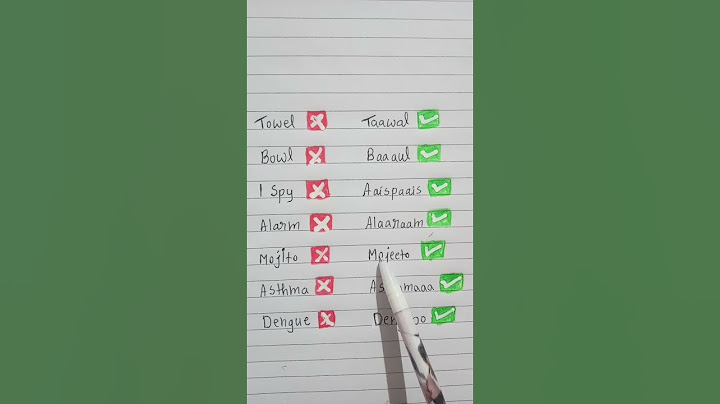 Towel Taawal
Bowl Baaaul
I Spy Aaispaais
Alarm Alaaraam
Mojito Mojeeto
Asthma
Dengue